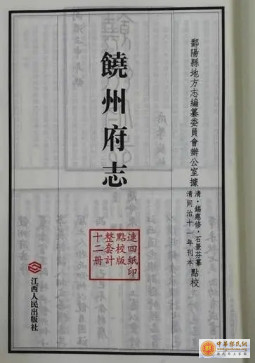 鄱陽縣地方志編纂委員會辦公室據
清·錫德修·石景芬纂
清同治十一年刊本 點校
饒州府志
連四紙印
點校版
整套計
十二冊
江西人民出版社
中華蔡氏網